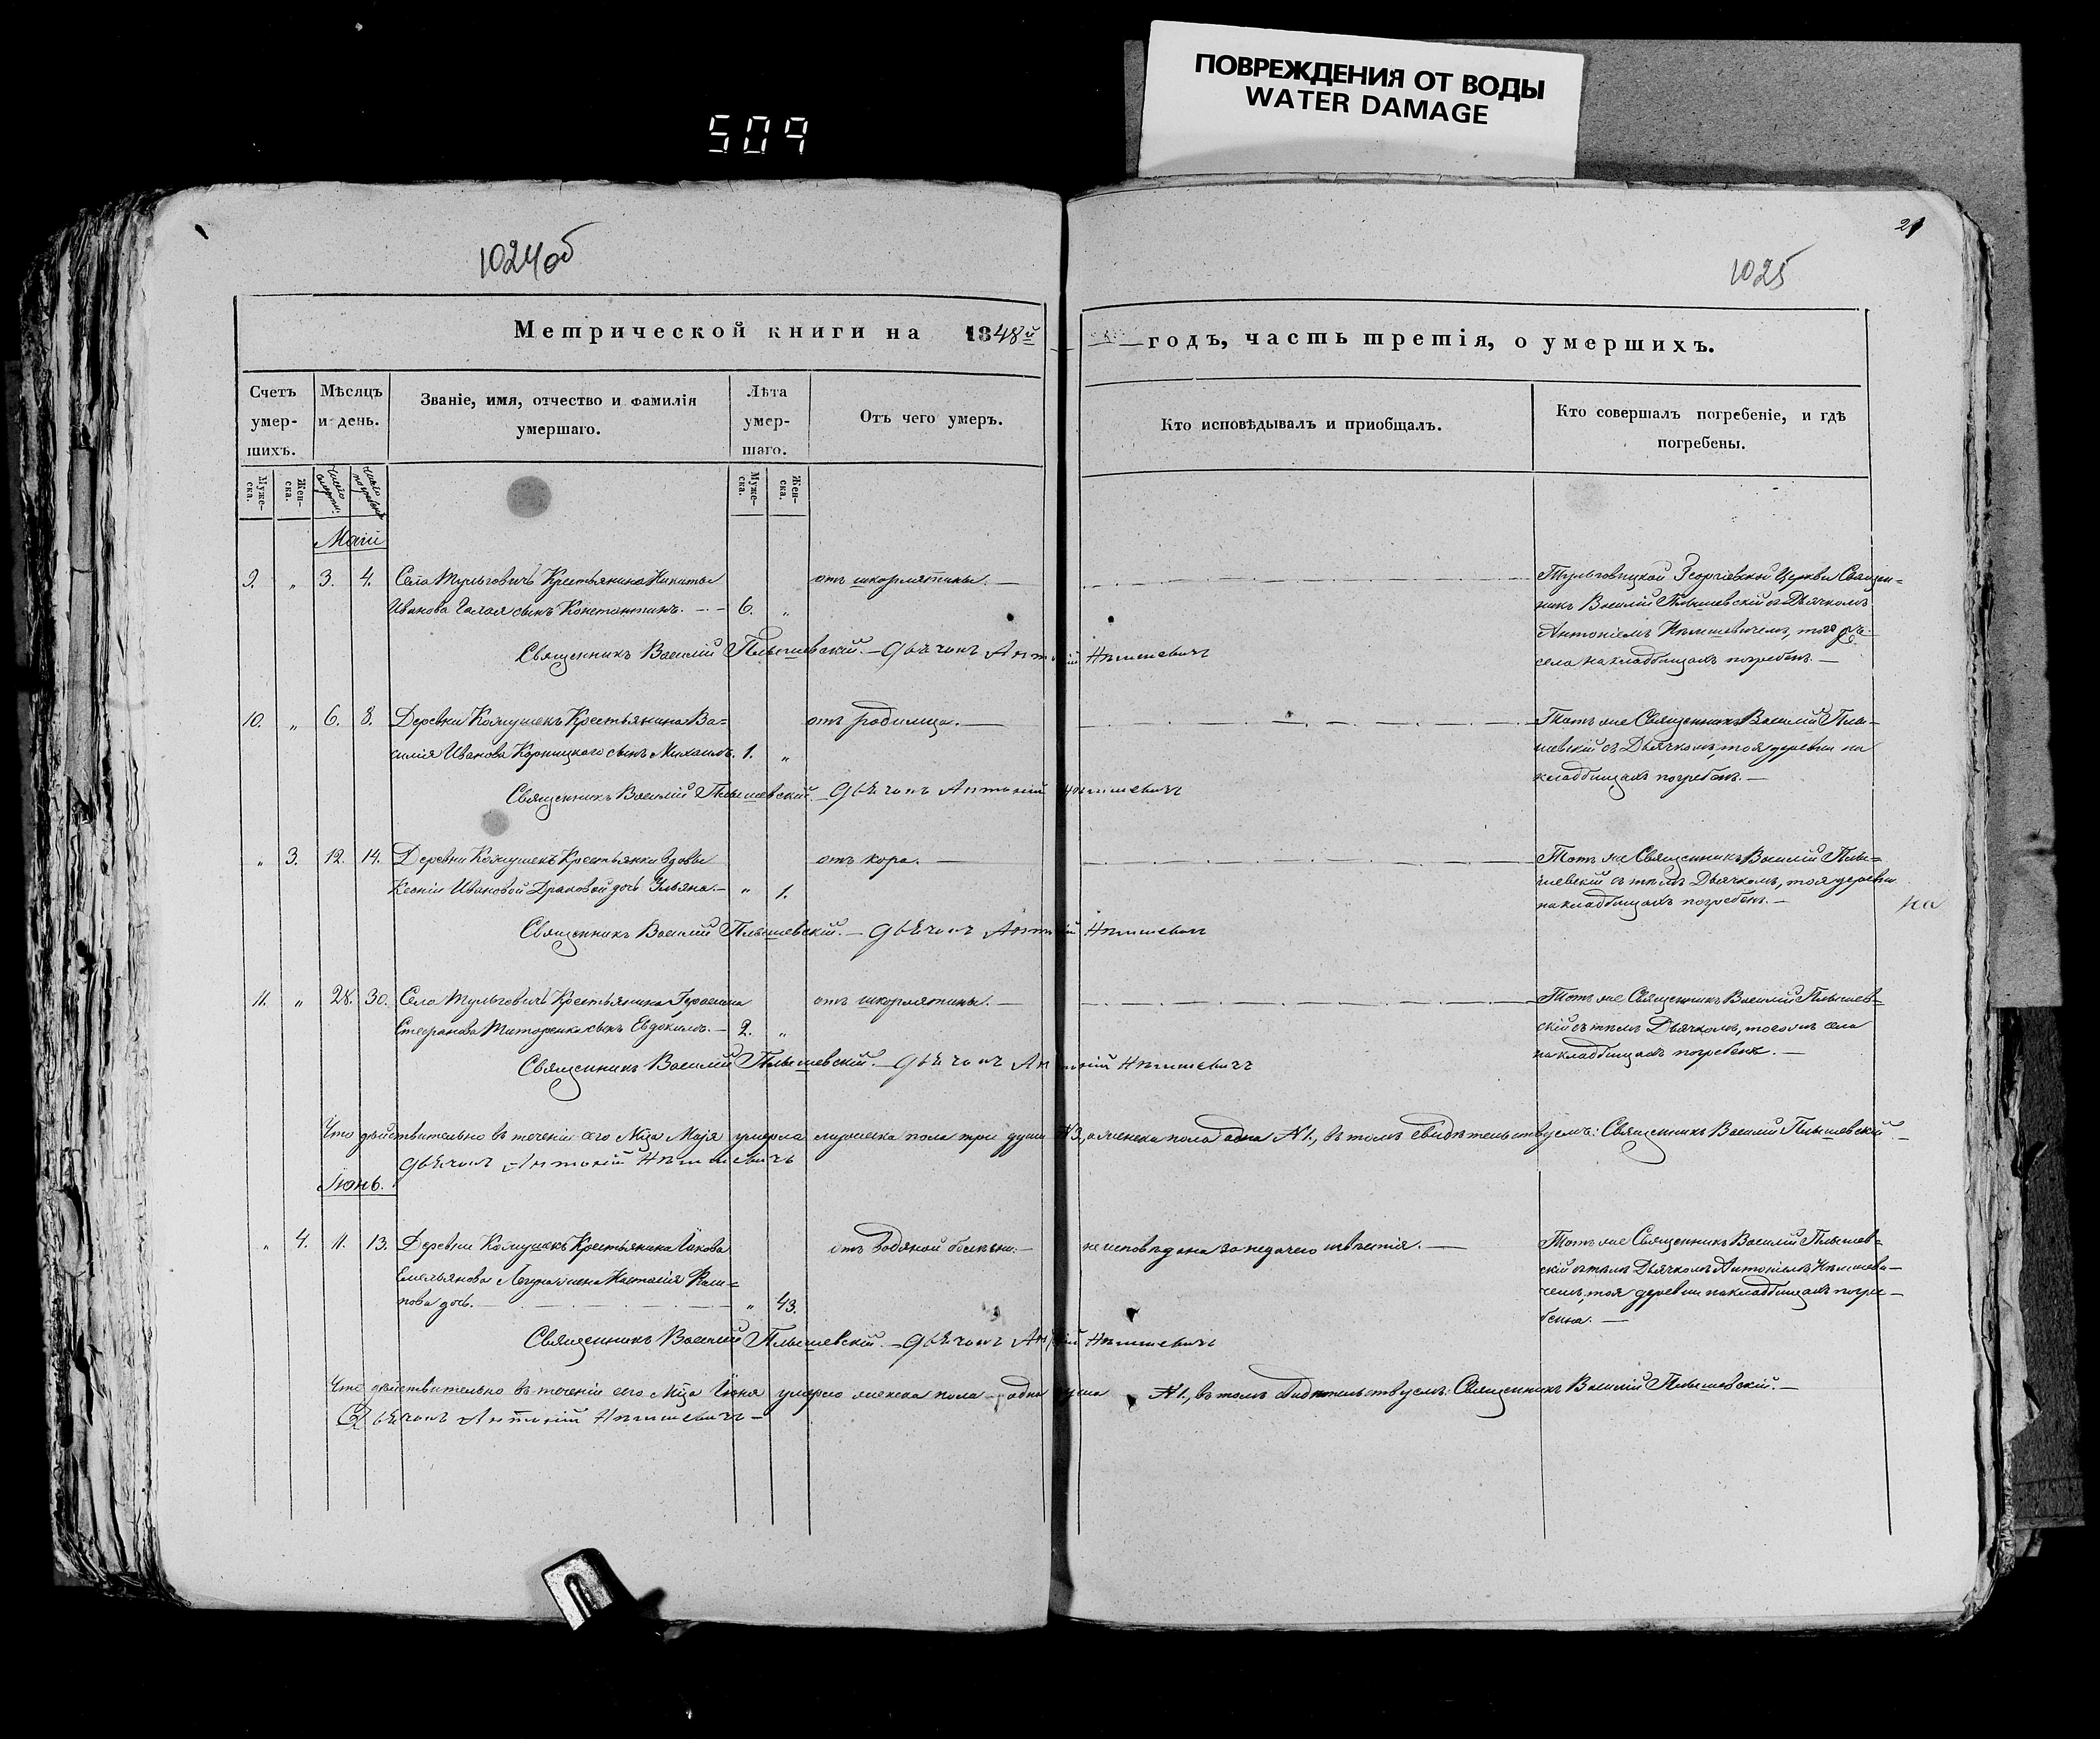 ПОВРЕЖДЕНИЯ ОТ ВОДЫ
WATER DAMAGE
509
1024об
21
1025
Метрической книги на 1848й годъ, часть третія, о умершихъ.
Счетъ умер-шихъ.
Мѣсяцъ и день.
Званіе, имя, отчество и фамилія умершаго.
Лѣта умер-шаго.
Отъ чего умеръ.
Кто исповѣдывалъ и приобщалъ.
Кто совершалъ погребеніе, и гдѣ погребены.
Муже-ска.
Жен-ска.
число смерти.
число погребенія
Муже-ска.
Жен-ска.
Маій
9. „ 3. 4. Села Тульговичъ Крестьянина Никиты
Иванова сынъ Константинъ. — 6. „
отъ шкорлятины. —
Тульговицкой Георгіевской Церкви Священ=
никъ Василій Плышевскій съ Дьячкомъ
Антоніемъ Нѣмшевичемъ, тогожъ
села на кладбищахъ погребенъ. —
Священникъ Василій Плышевскій. — Дьячокъ Антоній
10. „ 6. 8. Деревни Кожушекъ Крестьянина Ва=
силія Иванова Корницкаго сынъ Михаилъ. 1. „
отъ родимца. —
Тотъ же Священникъ Василій Плы-
шевскій съ Дьячкомъ, тоя деревни на
кладбищахъ погребенъ. —
Священникъ Василій Плышевскій. — Дьячокъ Антоній
„ 3. 12. 14. Деревни Кожушекъ Крестьянки вдовы
Ксеніи Ивановой Драковой дочь Ульяна. — „ 1.
отъ кора. —
Тотъ же Священникъ Василій Плы=
шевскій съ тѣмъ Дьячкомъ, тоя деревни
на кладбищахъ погребен. —
на
Священникъ Василій Плышевскій. — Дьячокъ Антоній
11. „ 28. 30. Села Тульговичъ Крестьянина Герасима
Стефанова Титоренка сынъ Евдокимъ. — 2. „
отъ шкорлятины. —
Тотъ же Священникъ Василій Плышев=
скій съ тѣмъ Дьячкомъ, тогожъ села
на кладбищахъ погребенъ. —
Священникъ Василій Плышевскій. — Дьячокъ Антоній
Что дѣйствительно въ теченіи сего М-ца Маія умерло мужеска пола три души № 3, а женска пола одна № 1, въ томъ свидѣтельствуемъ: Священникъ Василій Плышевскій. —
Дьячокъ Антоній
Іюнь.
„ 4. 11. 13. Деревни Кожушекъ Крестьянина Іакова
Емельянова жена Наталія Фили=
пова дочь. — „ 43.
отъ водяной болѣзни. —
не исповѣдана за недачею извѣстія. —
Тотъ же Священникъ Василій Плышев=
скій съ тѣмъ Дьячкомъ Антоніемъ Нѣмшеви—
чемъ, тоя деревни на кладбищахъ погре—
бенна. —
Священникъ Василій Плышевскій. — Дьячокъ Антоній
Что дѣйствительно въ теченіи сего М-ца Іюня умерло женска пола — одна душа № 1, въ томъ свидѣтельствуемъ: Священникъ Василій Плышевскій. —
Дьячокъ Антоній